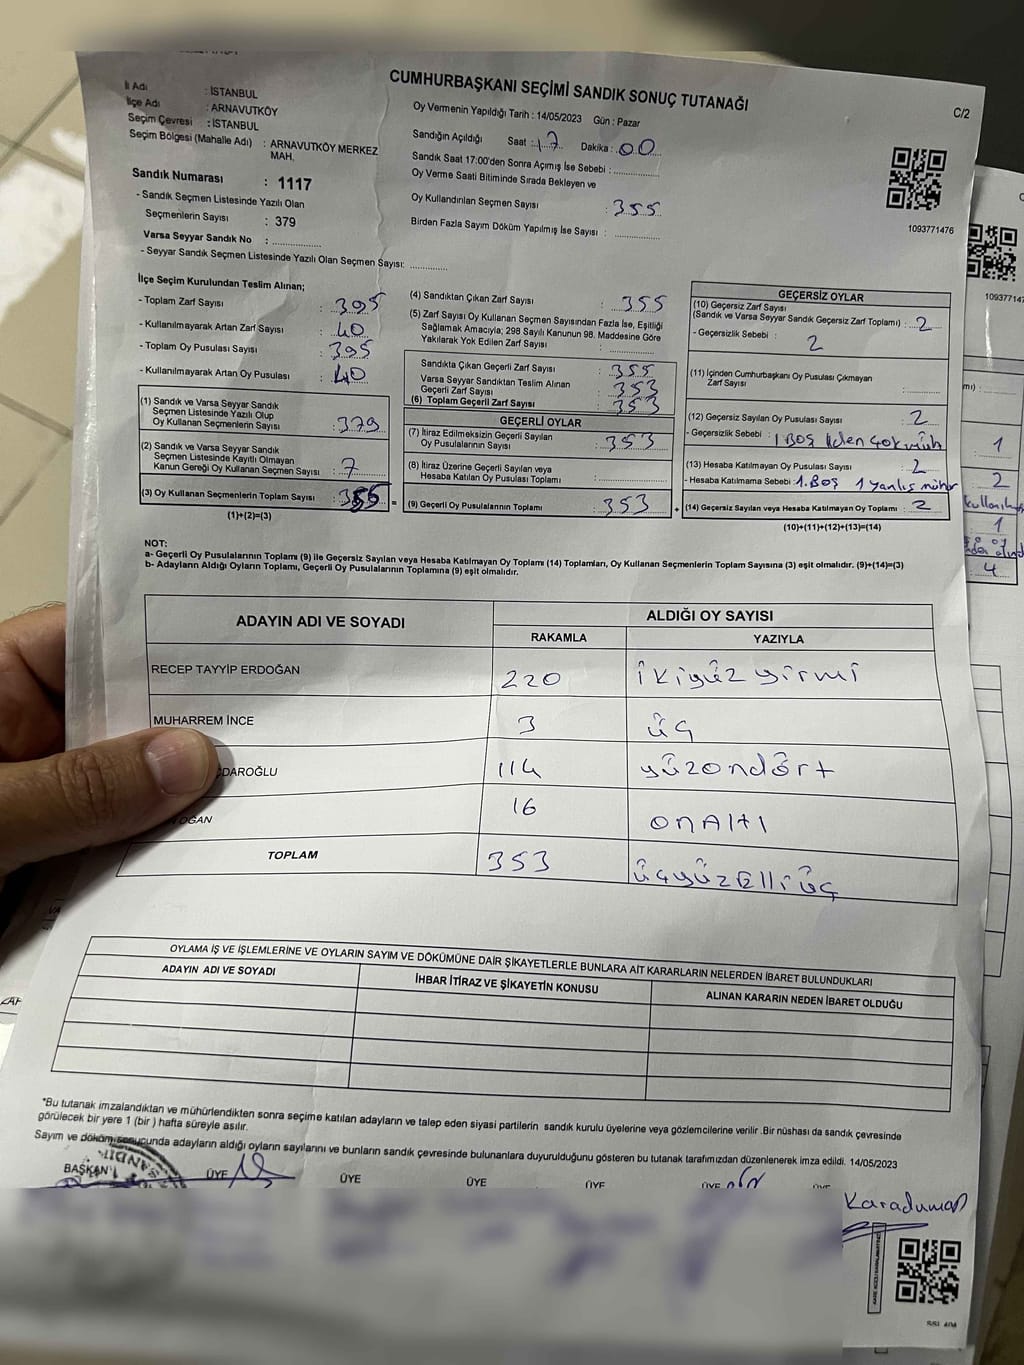 CUMHURBAŞKANI SEÇİMİ SANDIK SONUÇ TUTANAĞI
C/2
İl Adı : İSTANBUL
İlçe Adı : ARNAVUTKÖY
Seçim Çevresi : İSTANBUL
Seçim Bölgesi (Mahalle Adı) : ARNAVUTKÖY MERKEZ
MAH.
Sandık Numarası : 1117
- Sandık Seçmen Listesinde Yazılı Olan
Seçmenlerin Sayısı : 379
Varsa Seyyar Sandık No : ................
- Seyyar Sandık Seçmen Listesinde Yazılı Olan Seçmen Sayısı: ............
Oy Vermenin Yapıldığı Tarih : 14/05/2023 Gün : Pazar
Sandığın Açıldığı Saat : 17 Dakika : 00
Sandık Saat 17:00'den Sonra Açımış İse Sebebi : ..............
Oy Verme Saati Bitiminde Sırada Bekleyen ve
Oy Kullandırılan Seçmen Sayısı : 355
Birden Fazla Sayım Döküm Yapılmış İse Sayısı : ..............
1093771476
İlçe Seçim Kurulundan Teslim Alınan;
- Toplam Zarf Sayısı : 395
- Kullanılmayarak Artan Zarf Sayısı : 40
- Toplam Oy Pusulası Sayısı : 395
- Kullanılmayarak Artan Oy Pusulası : 40
(1) Sandık ve Varsa Seyyar Sandık
Seçmen Listesinde Yazılı Olup
Oy Kullanan Seçmenlerin Sayısı : 379
(2) Sandık ve Varsa Seyyar Sandık
Seçmen Listesinde Kayıtlı Olmayan
Kanun Gereği Oy Kullanan Seçmen Sayısı : 7
(3) Oy Kullanan Seçmenlerin Toplam Sayısı : 355 =
(1)+(2)=(3)
(4) Sandıktan Çıkan Zarf Sayısı : 355
(5) Zarf Sayısı Oy Kullanan Seçmen Sayısından Fazla İse, Eşitliği
Sağlamak Amacıyla; 298 Sayılı Kanunun 98. Maddesine Göre
Yakılarak Yok Edilen Zarf Sayısı : ..............
Sandıkta Çıkan Geçerli Zarf Sayısı : 355
Varsa Seyyar Sandıktan Teslim Alınan
Geçerli Zarf Sayısı : 353
(6) Toplam Geçerli Zarf Sayısı : 353
GEÇERLİ OYLAR
(7) İtiraz Edilmeksizin Geçerli Sayılan
Oy Pusulalarının Sayısı : 353
(8) İtiraz Üzerine Geçerli Sayılan veya
Hesaba Katılan Oy Pusulası Toplamı : ..............
(9) Geçerli Oy Pusulalarının Toplamı : 353 +
GEÇERSİZ OYLAR
(10) Geçersiz Zarf Sayısı
(Sandık ve Varsa Seyyar Sandık Geçersiz Zarf Toplamı) : 2
- Geçersizlik Sebebi : 2
(11) İçinden Cumhurbaşkanı Oy Pusulası Çıkmayan
Zarf Sayısı
(12) Geçersiz Sayılan Oy Pusulası Sayısı : 2
- Geçersizlik Sebebi : 1 BOŞ 1den çok müh
(13) Hesaba Katılmayan Oy Pusulası Sayısı : 2
- Hesaba Katılmama Sebebi : 1. BOŞ 1 yanlış mühür
(14) Geçersiz Sayılan veya Hesaba Katılmayan Oy Toplamı : 2
(10)+(11)+(12)+(13)=(14)
NOT:
a- Geçerli Oy Pusulalarının Toplamı (9) ile Geçersiz Sayılan veya Hesaba Katılmayan Oy Toplamı (14) Toplamları, Oy Kullanan Seçmenlerin Toplam Sayısına (3) eşit olmalıdır. (9)+(14)=(3)
b- Adayların Aldığı Oyların Toplamı, Geçerli Oy Pusulalarının Toplamına (9) eşit olmalıdır.
ADAYIN ADI VE SOYADI ALDIĞI OY SAYISI
RAKAMLA YAZIYLA
RECEP TAYYİP ERDOĞAN 220 ikiyüz yirmi
MUHARREM İNCE 3 üç
ÇDAROĞLU 114 yüzondört
OĞAN 16 onAltı
TOPLAM 353 üçyüzElliüç
OYLAMA İŞ VE İŞLEMLERİNE VE OYLARIN SAYIM VE DÖKÜMÜNE DAİR ŞİKAYETLERLE BUNLARA AİT KARARLARIN NELERDEN İBARET BULUNDUKLARI
ADAYIN ADI VE SOYADI İHBAR İTİRAZ VE ŞİKAYETİN KONUSU ALINAN KARARIN NEDEN İBARET OLDUĞU
*Bu tutanak imzalandıktan ve mühürlendikten sonra seçime katılan adayların ve talep eden siyasi partilerin sandık kurulu üyelerine veya gözlemcilerine verilir .Bir nüshası da sandık çevresinde
görülecek bir yere 1 (bir ) hafta süreyle asılır.
Sayım ve döküm sonucunda adayların aldığı oyların sayılarını ve bunların sandık çevresinde bulunanlara duyurulduğunu gösteren bu tutanak tarafımızdan düzenlenerek imza edildi. 14/05/2023
BAŞKAN ÜYE ÜYE ÜYE ÜYE ÜYE
Karaduman
1
2
1
4